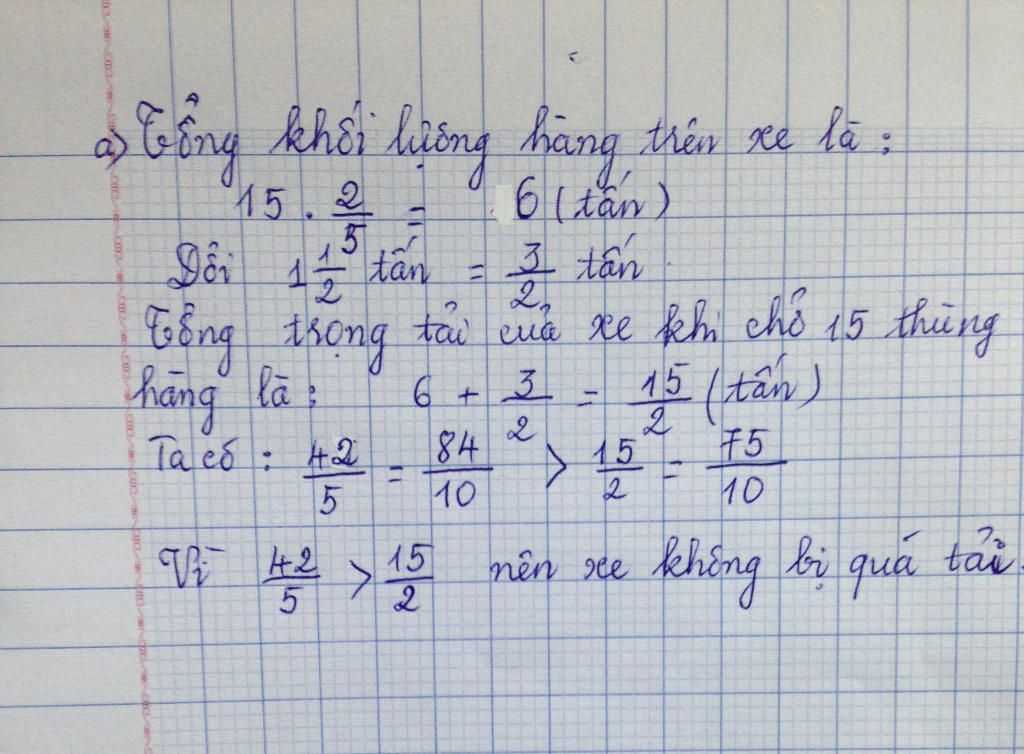 a) Tổng khối lượng hàng trên xe là :
15 . 2/5 = 6 (tấn)
Đổi 1 1/2 tấn = 3/2 tấn .
Tổng trọng tải của xe khi chở 15 thùng
hàng là : 6 + 3/2 = 15/2 (tấn)
Ta có : 42/5 = 84/10 > 15/2 = 75/10
Vì 42/5 > 15/2 nên xe không bị quá tải .